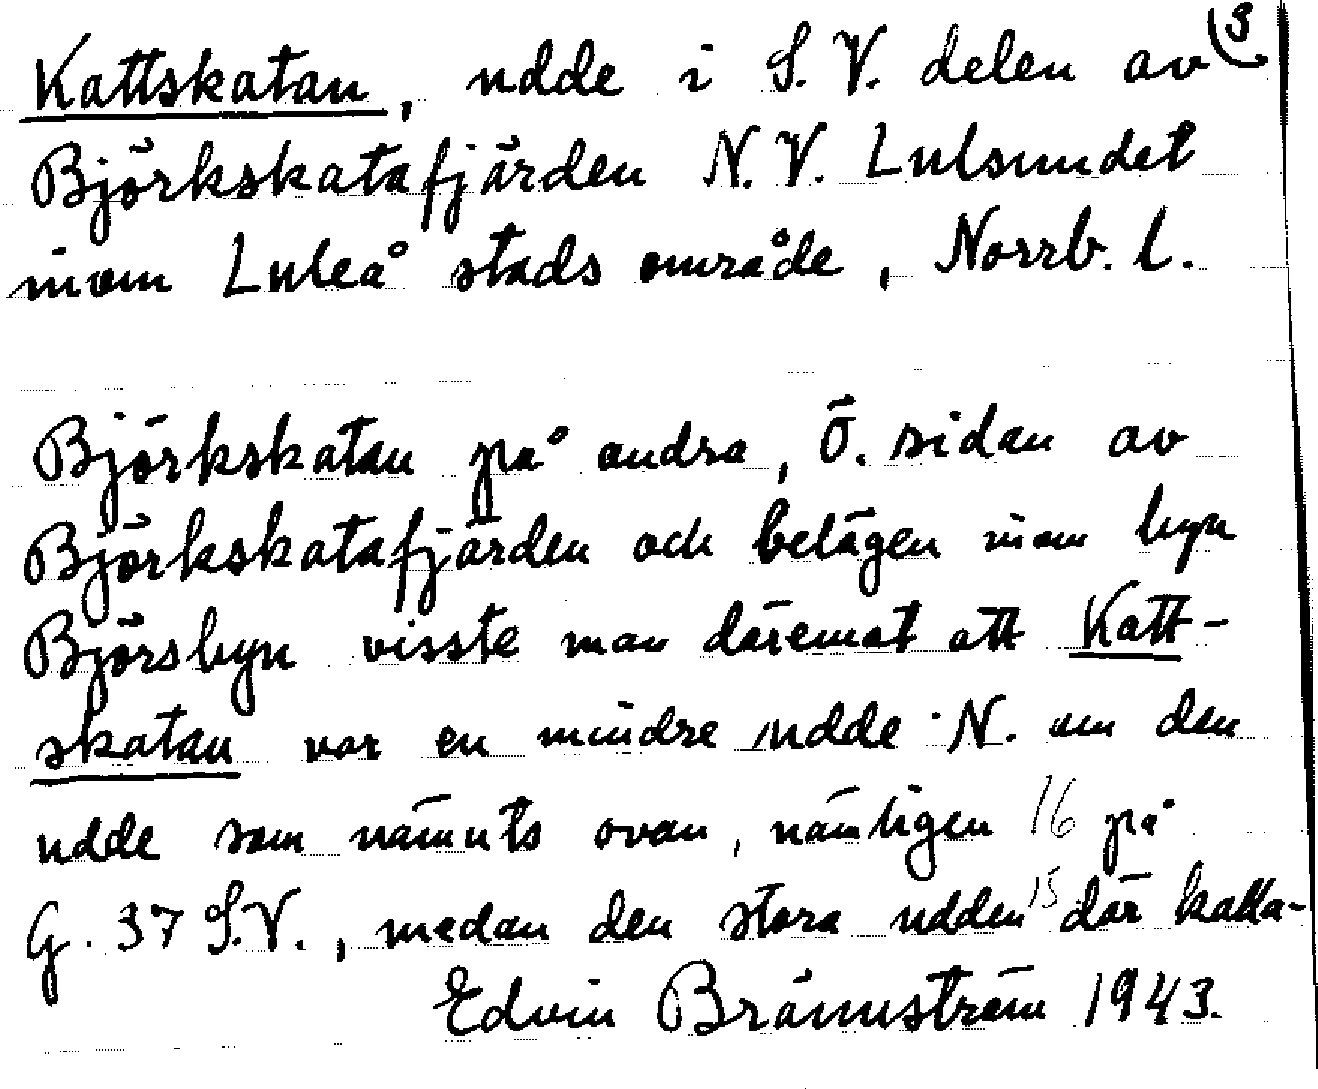 Kattskatan, udde i S.V. delen av 3
Björkskatafjärden N.V. Lulsundet
inom Luleå stads område, Norrb. l.
Björkskatan på andra, Ö. sidan av
Björkskatafjärden och belägen inom byn
Björsbyn visste man däremot att Katt-
skatan var en mindre udde N. om den
udde som nämnts ovan, nämligen 16 på
G. 37 S.V., medan den stora udden 15 där kalla-
Edvin Brännström 1943.